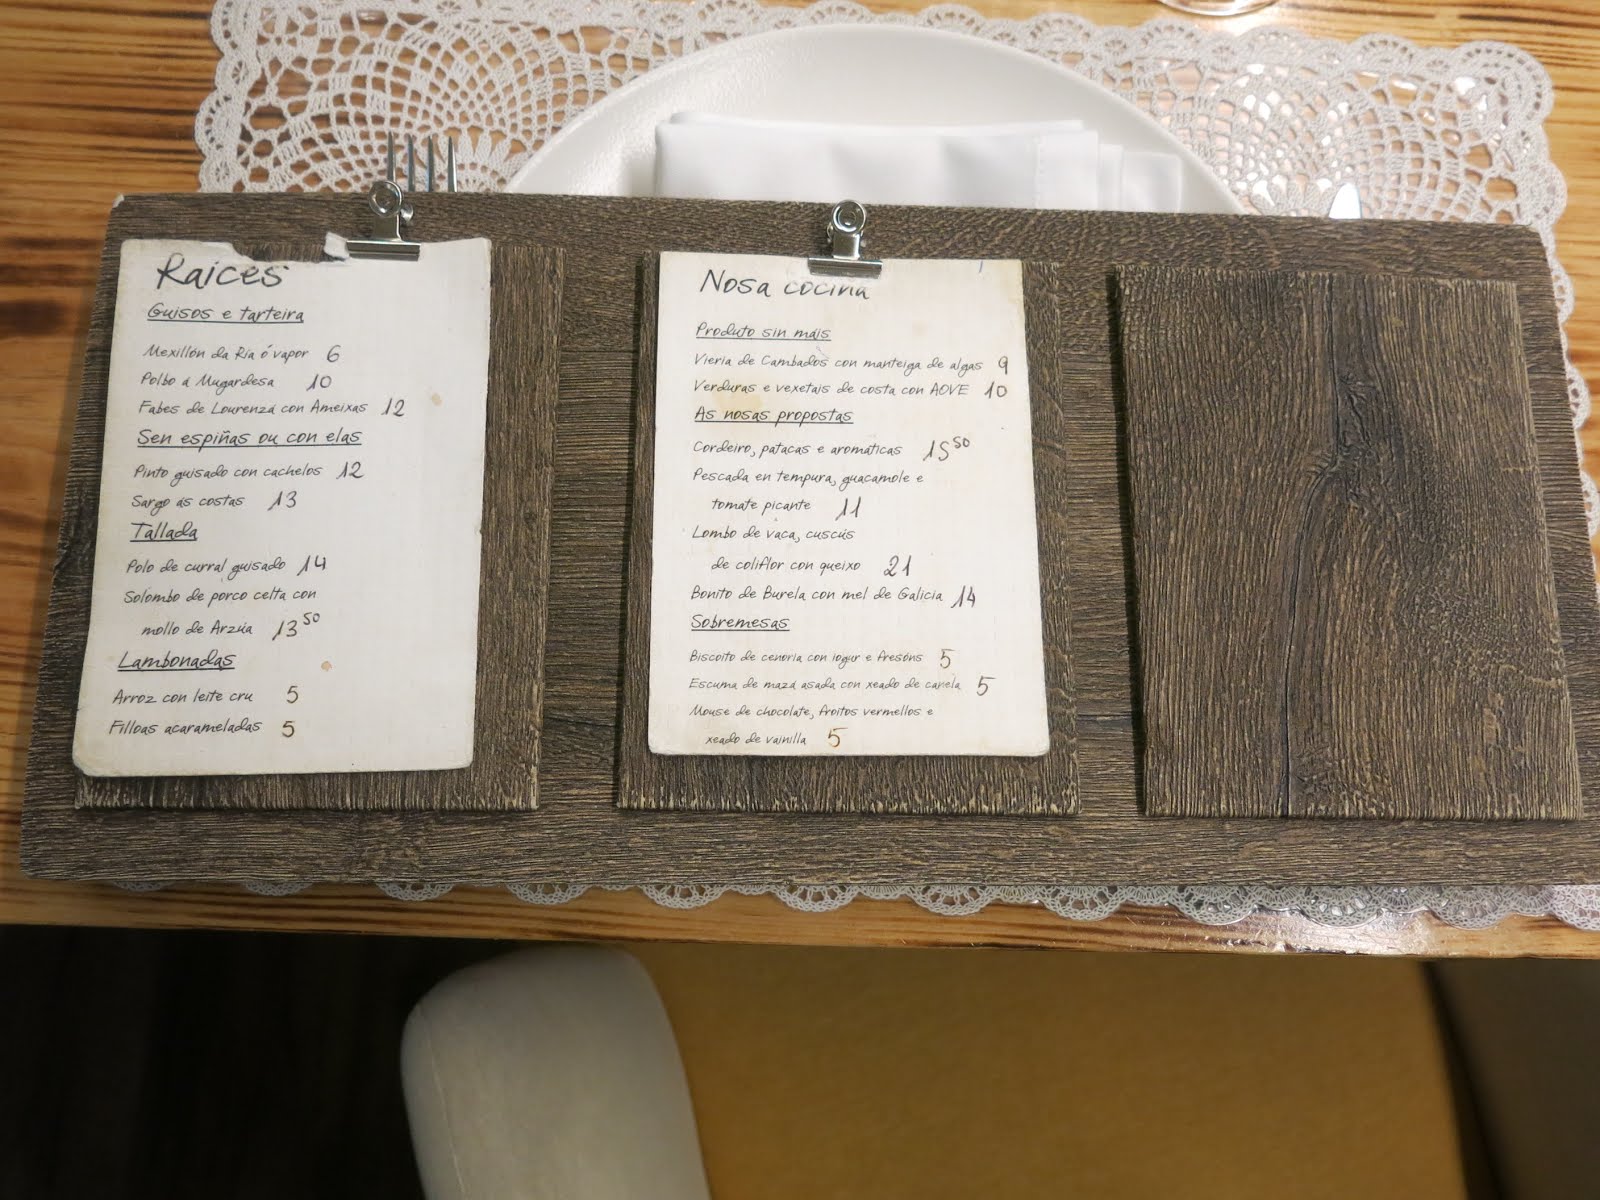 Raices
Guisos e tarteira
Mexillón da Ría ó vapor 6
Polbo á Mugardesa 10
Fabes de Lourenzá con Ameixas 12
Sen espiñas ou con elas
Pinto guisado con cachelos 12
Sargo ás costas 13
Tallada
Polo de curral guisado 14
Solombo de porco celta con
mollo de Arzúa 13 50
Lambonadas
Arroz con leite cru 5
Filloas acarameladas 5
Nosa cociña
Produto sin máis
Vieria de Cambados con manteiga de algas 9
Verduras e vexetais de costa con AOVE 10
As nosas propostas
Cordeiro, patacas e aromáticas 15 50
Pescada en tempura, guacamole e
tomate picante 11
Lombo de vaca, cuscús
de coliflor con queixo 21
Bonito de Burela con mel de Galicia 14
Sobremesas
Biscoito de cenoria con iogur e fresóns 5
Escuma de mazá asada con xeado de canela 5
Mouse de chocolate, froitos vermellos e
xeado de vainilla 5